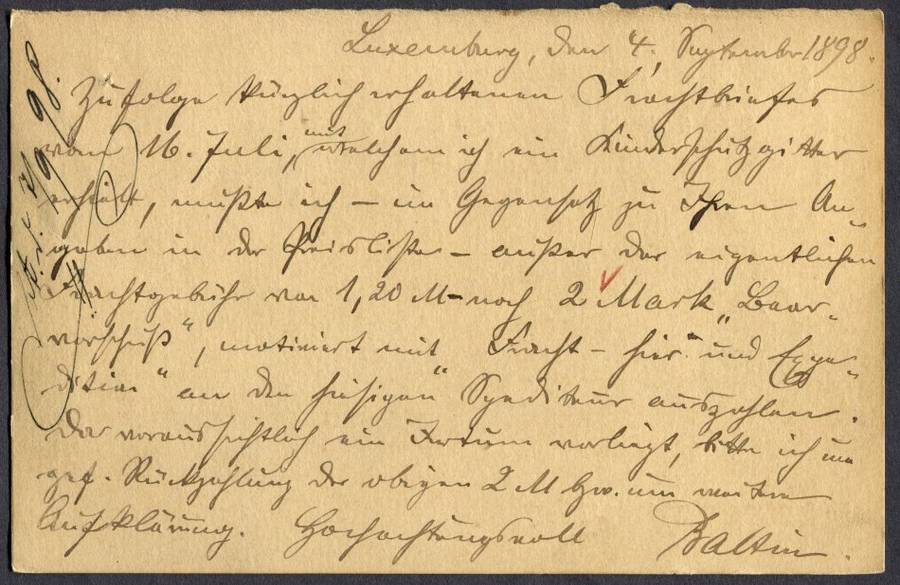 Luxemburg, den 4. September 1898.
Zufolge kürzlich erhaltenen Frachtbriefes
vom 16. Juli, mit welchem ich ein Kinderschutzgitter
erhielt, mußte ich – im Gegensatz zu Ihren An-
gaben in der Preisliste – außer der eigentlichen
Frachtgebühr von 1,20 M – noch 2 Mark „Baar-
vorschuß“, motiviert mit „Fracht – hier“ und „Expe-
dition“ an den hiesigen Spediteur auszahlen.
Da voraussichtlich ein Irrtum vorliegt, bitte ich um
gef. Rückzahlung der obigen 2 M bzw. um weitere
Aufklärung. Hochachtungsvoll
7/9 98.